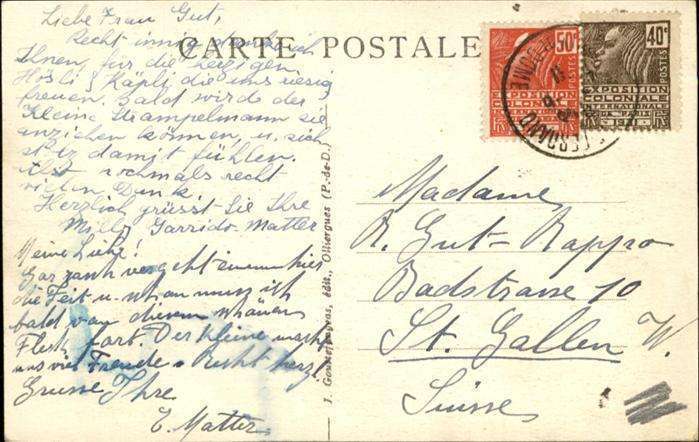 CARTE POSTALE
Liebe Frau Gut,
Recht innig danke ich
Ihnen für die herzigen
Hösli & Käpli die uns riesig
freuen. Bald wird der
Kleine Strampelmann sie
anziehen können, u. sich
stolz damit fühlen.
Also nochmals recht
vielen Dank
Herzlich grüsst Sie Ihre
Milly Garrido-Matter
Meine Liebe!
Gar rasch vergeht einem hier
die Zeit u. schon muss ich
bald von diesem schönen
Fleck fort. Der Kleine macht
uns viel Freude. Recht herzl.
Grüsse Ihre
E. Matter
J. édit., Olliergues (P.-de-D.)
50c
POSTES
EXPOSITION
COLONIALE
INTERNATIONALE
PARIS 1931
40c
POSTES
EXPOSITION
COLONIALE
INTERNATIONALE
PARIS 1931
Madame
R. Gut-Rappo
Badstrasse 10
St. Gallen W.
Suisse